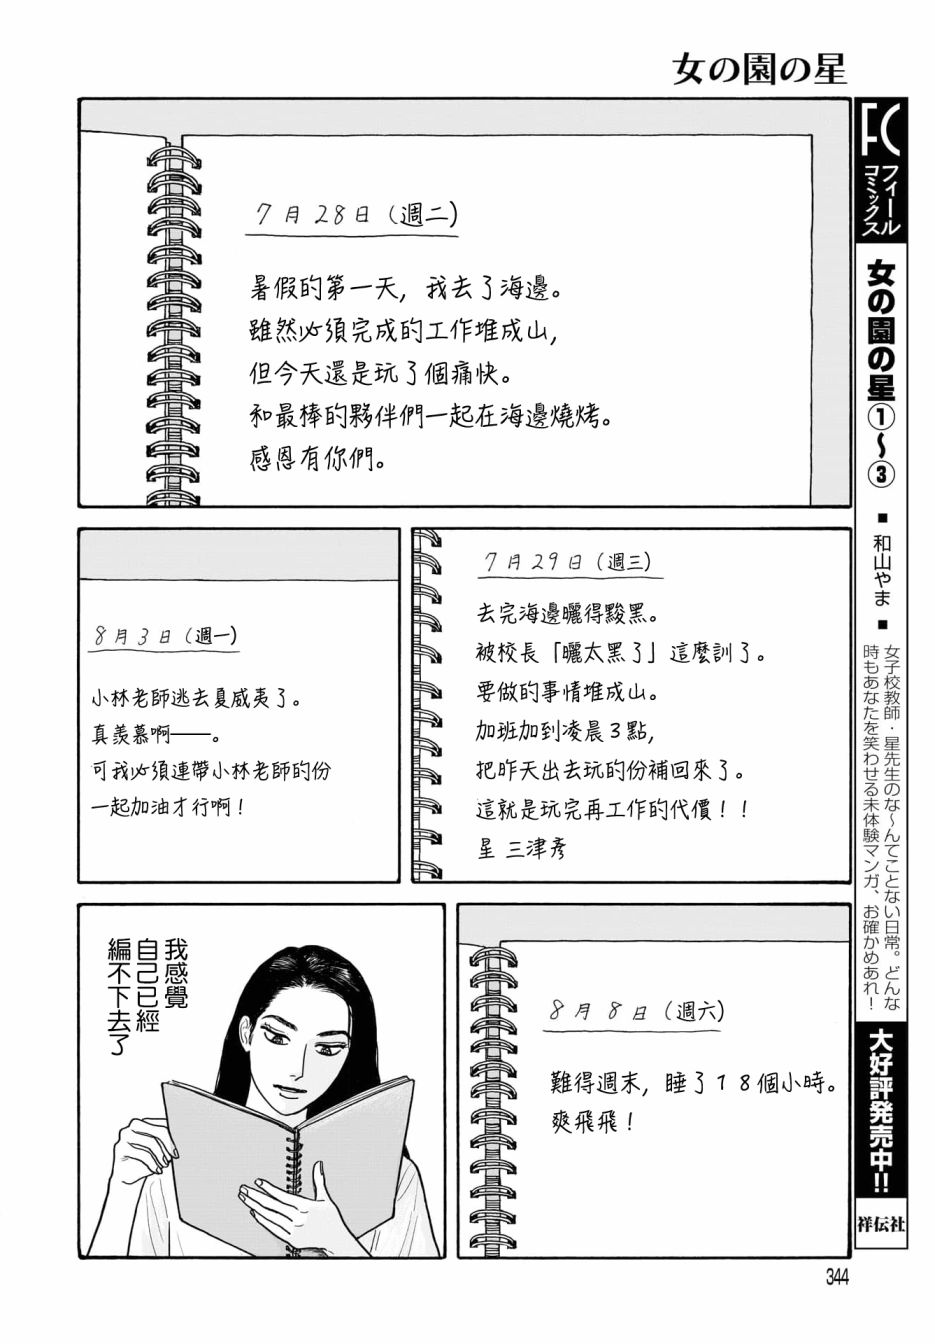 女の園の星
7月28日(週二)
暑假的第一天，我去了海邊。
雖然必須完成的工作堆成山，
但今天還是玩了個痛快。
和最棒的夥伴們一起在海邊燒烤。
感恩有你們。
7月29日(週三)
去完海邊曬得黢黑。
被校長「曬太黑了」這麼訓了。
要做的事情堆成山。
加班加到凌晨３點，
把昨天出去玩的份補回來了。
這就是玩完再工作的代價！！
星 三津彥
8月3日(週一)
小林老師逃去夏威夷了。
真羨慕啊——。
可我必須連帶小林老師的份
一起加油才行啊！
8月8日(週六)
難得週末，睡了１８個小時。
爽飛飛！
我感覺
自己已經
編不下去了
FC
フィール
コミックス
女の園の星①〜③
■ 和山やま ■
女子校教師・星先生のな〜んてことない日常。どんな
時もあなたを笑わせる未体験マンガ、お確かめあれ！
大好評発売中!!
祥伝社
344